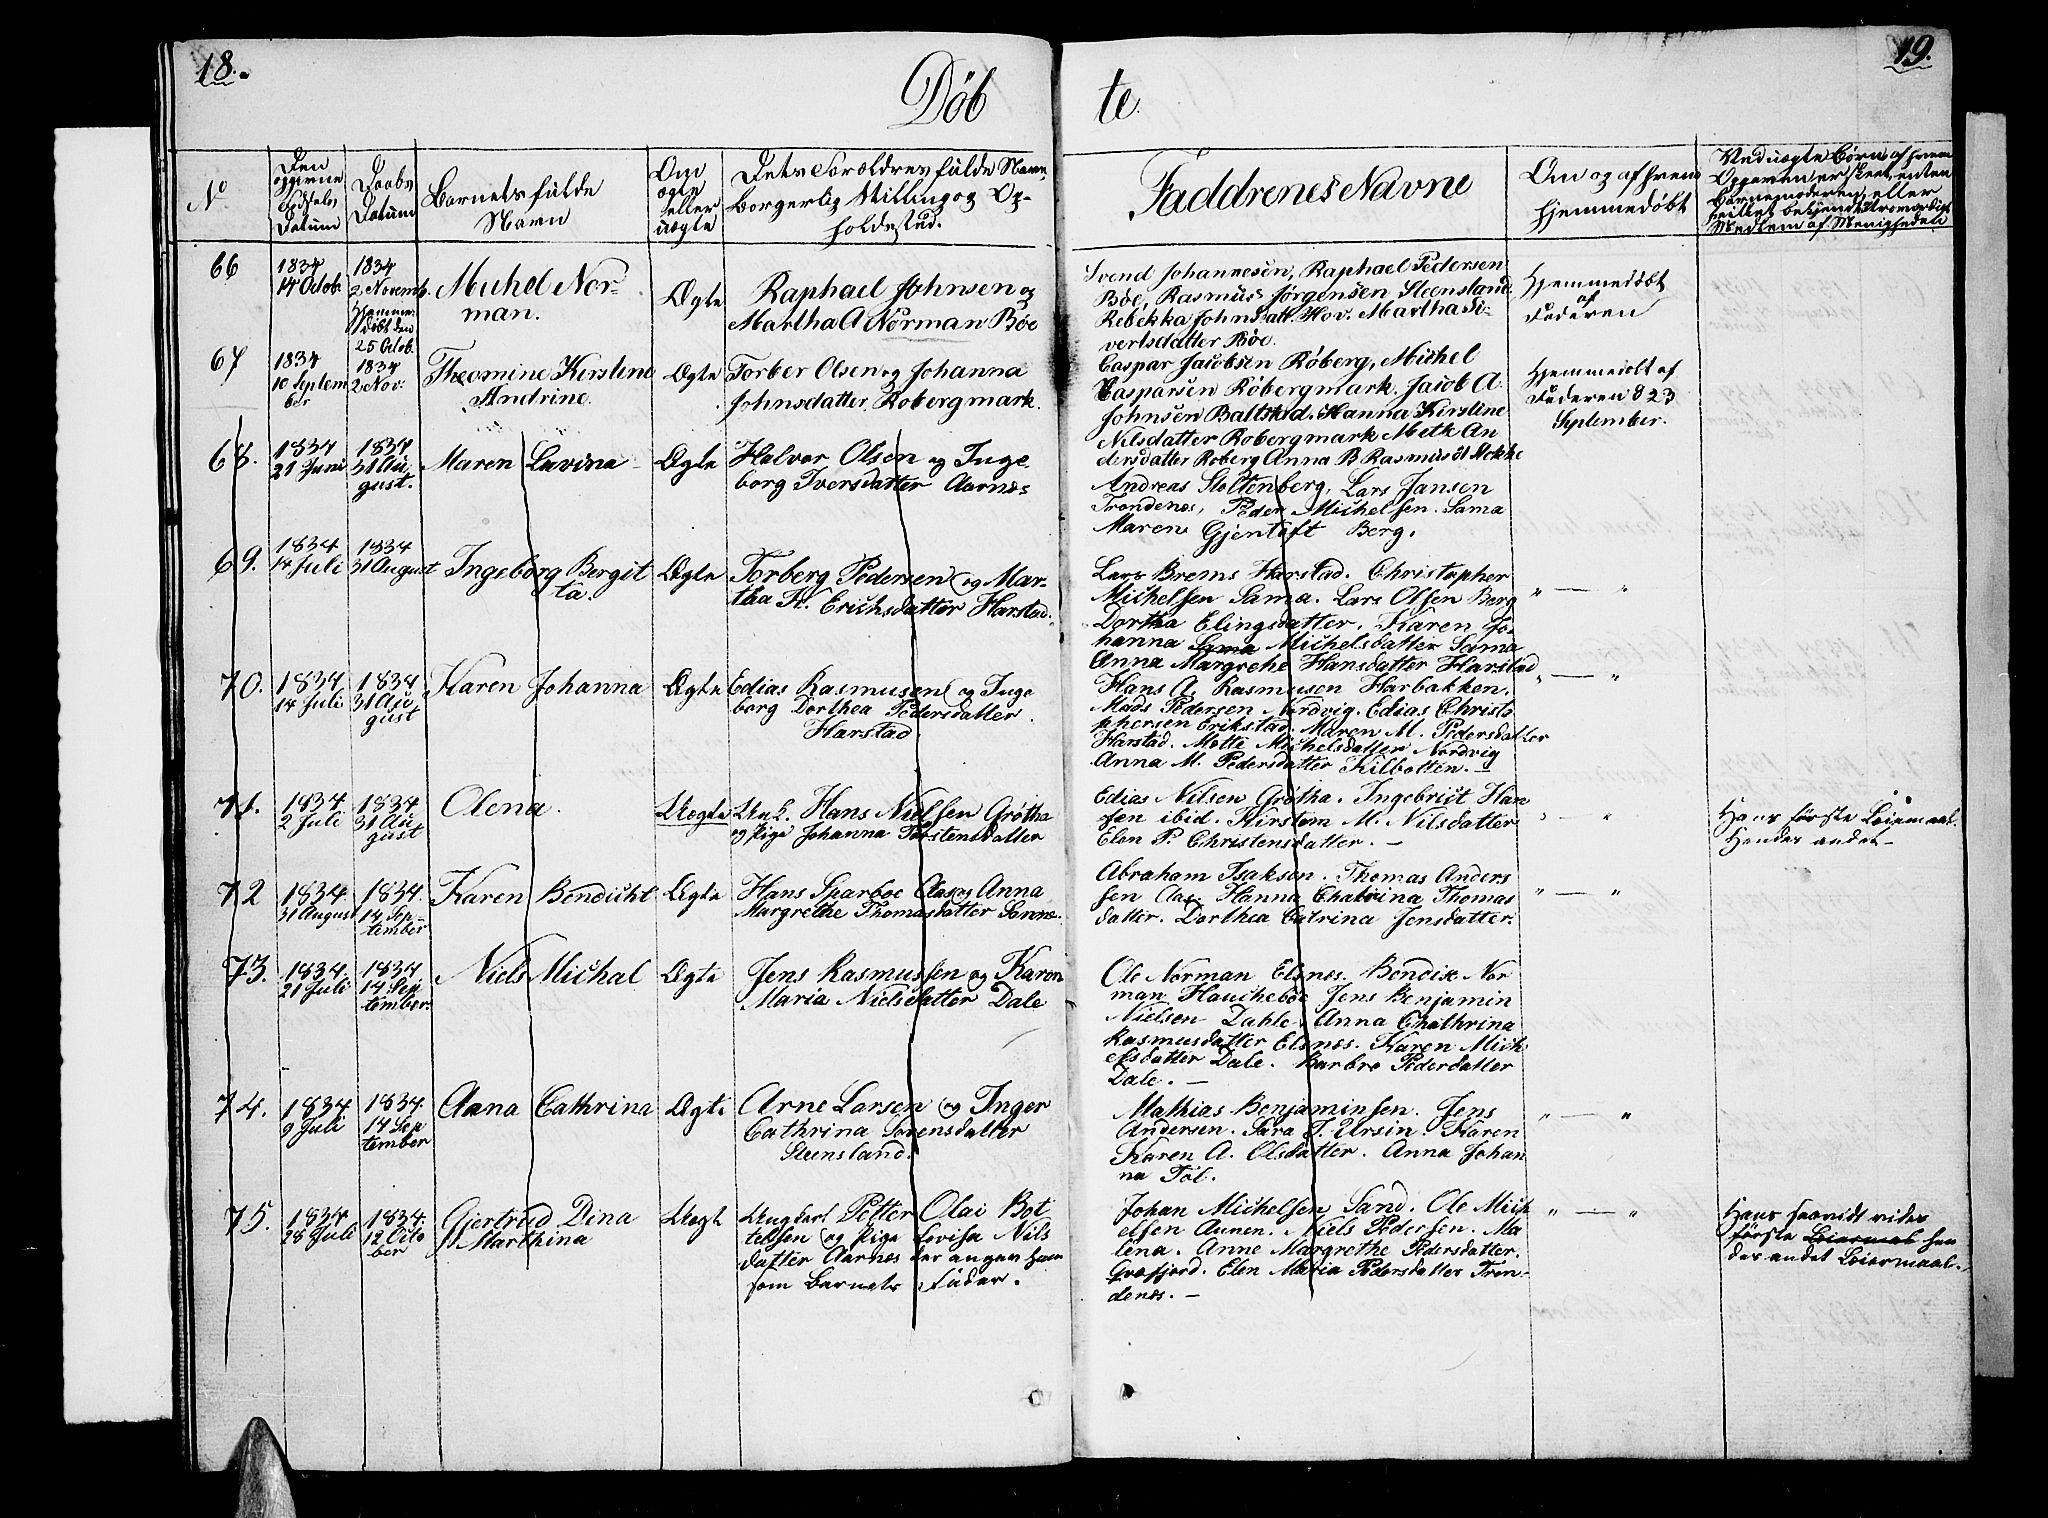 18.
19.
Döb
te.
No
Den opgivne Fødsels Datum
Daabs Datum
Barnets fulde Navn
Om ægte eller uægte
Dets Forældres fulde Navn, Borgerlig Stilling og Opholdested.
Faddrenes Navne
Om og af hvem hjemmedøbt
66
1834
14 Octob.
1834
2 Novemb.
Hjemme
döbt den
25 Octob.
Michel Nor-
man.
Ægte
Raphael Johnsen og
Martha A Norman Böe
Svend Johannesen, Raphael Pedersen
Böe, Rasmus Jörgensen Steensland
Rebekka Johnsdatt. Hov. Martha Si-
vertsdatter Böe.
Hjemmedöbt
af
Faderen
67
1834
10 Septem
ber
1834
2 Nov:
Theomine Kirstine
Andrine.
Ægte
Torber Olsen og Johanna
Johnsdatter Robergmark.
Caspar Jacobsen Röberg, Michel
Casparsen Röbergmark. Jacob A.
Johnsen Baltstad. Hanna Kirstine
Nilsdatter Robergmark Metk An
dersdatter Roberg Anna B Rasmusdt
Hjemmedöbt af
Faderen d 23
September.
68.
1834
21 Juni
1834
31 Au
gust.
Maren Lavina
Ægte
Halvor Olsen og Inge
borg Iversdatter Aarnes
Andreas Stoltenberg, Lars Jansen
Trondenes, Peder Michelsen Sama
Maren Gjentoft Berg.
69.
1834
14 Juli
1834
31 August
Ingeborg Bergit
ta.
Ægte
Torberg Pedersen og Mar-
tha K. Erichsdatter Harstad.
Lars Brems Harstad. Christopher
Michelsen Sama. Lars Olsen Berg
Dorthea Elingsdatter. Karen Jo-
hanna Sama Michelsdatter Sama
Anna Margrehe Hansdatter Harstad
" — "
70.
1834
14 Juli
1834
31 Au
gust
Karen Johanna
Ægte
Edias Rasmusen og Inge
borg Dorthea Pedersdatter
Harstad
Hans A. Rasmusen Harbakken.
Mads Pedersen Nordvig. Edias Christo
phersen Erikstad. Maren M. Pedersdatter
Harstad. Mette Michelsdatter Nordvig
Anna M. Pedersdatter Kilbotten. —
" — "
71.
1834
2 Juli
1834
31 Au
gust
Olena.
Uægte
Unk. Hans Nielsen Grötha
og Pige Johanna Torstensdatter
Edias Nilsen Grötha. Ingebrict Han
sen ibid. Kirsten M. Nilsdatter
Elen P. Christensdatter. —
" — "
Hans første Leiermaal.
Hendes andet —
72
1834
31 August
1834.
14 Sep-
tember
Karen Bendicht
Ægte
Hans Sparboe Aas og Anna
Margrethe Thomasdatter Sanne.
Abraham Isaksen. Thomas Anders
sen Aas. Hanna Chatrina Thomas
datter. Dorthea Catrina Jensdatter.
" — "
73.
1834.
21 Juli
1834
14 Sep
tember.
Niels Michal
Ægte
Jens Rasmussen og Karen
Maria Nielsdatter Dale
Ole Norman Elsnes. Bendix Nor
man Haucheböe Jens Benjamin
Nielsen Dahle. Anna Chathrina
Rasmusdatter Elsnes. Karen Mich
elsdatter Dale. Barbro Pedersdatter
Dale. —
74.
1834
9 Juli
1834.
14 Sep
tember
Anna Cathrina
Ægte
Arne Larsen og Inger
Cathrina Sörensdatter
Steensland.
Mathias Benjaminsen. Jens
Andersen. Sara J. Ursin. Karen
Karen A. Olsdatter. Anna Johan
na Föl.
" — "
75.
1834
28 Juli
1834.
12 Octo
ber
Gjertrud Dina
Marthina
Uægt
Ungkarl Petter Olai Bot
telsen og Pige Lovisa Nils
datter Aarnes der angav ham
som Barnets Fader.
Johan Michelsen Sand. Ole Mich
elsen Aunen. Niels Pedersen. Ma
lena. Anne Margrethe Pedersdatter.
Grøfjord. Elen Maria Pedersdatter Tron-
denes. —
" — "
Hans saavidt vides
første Leiermaal hen
des andet Leiermaal.